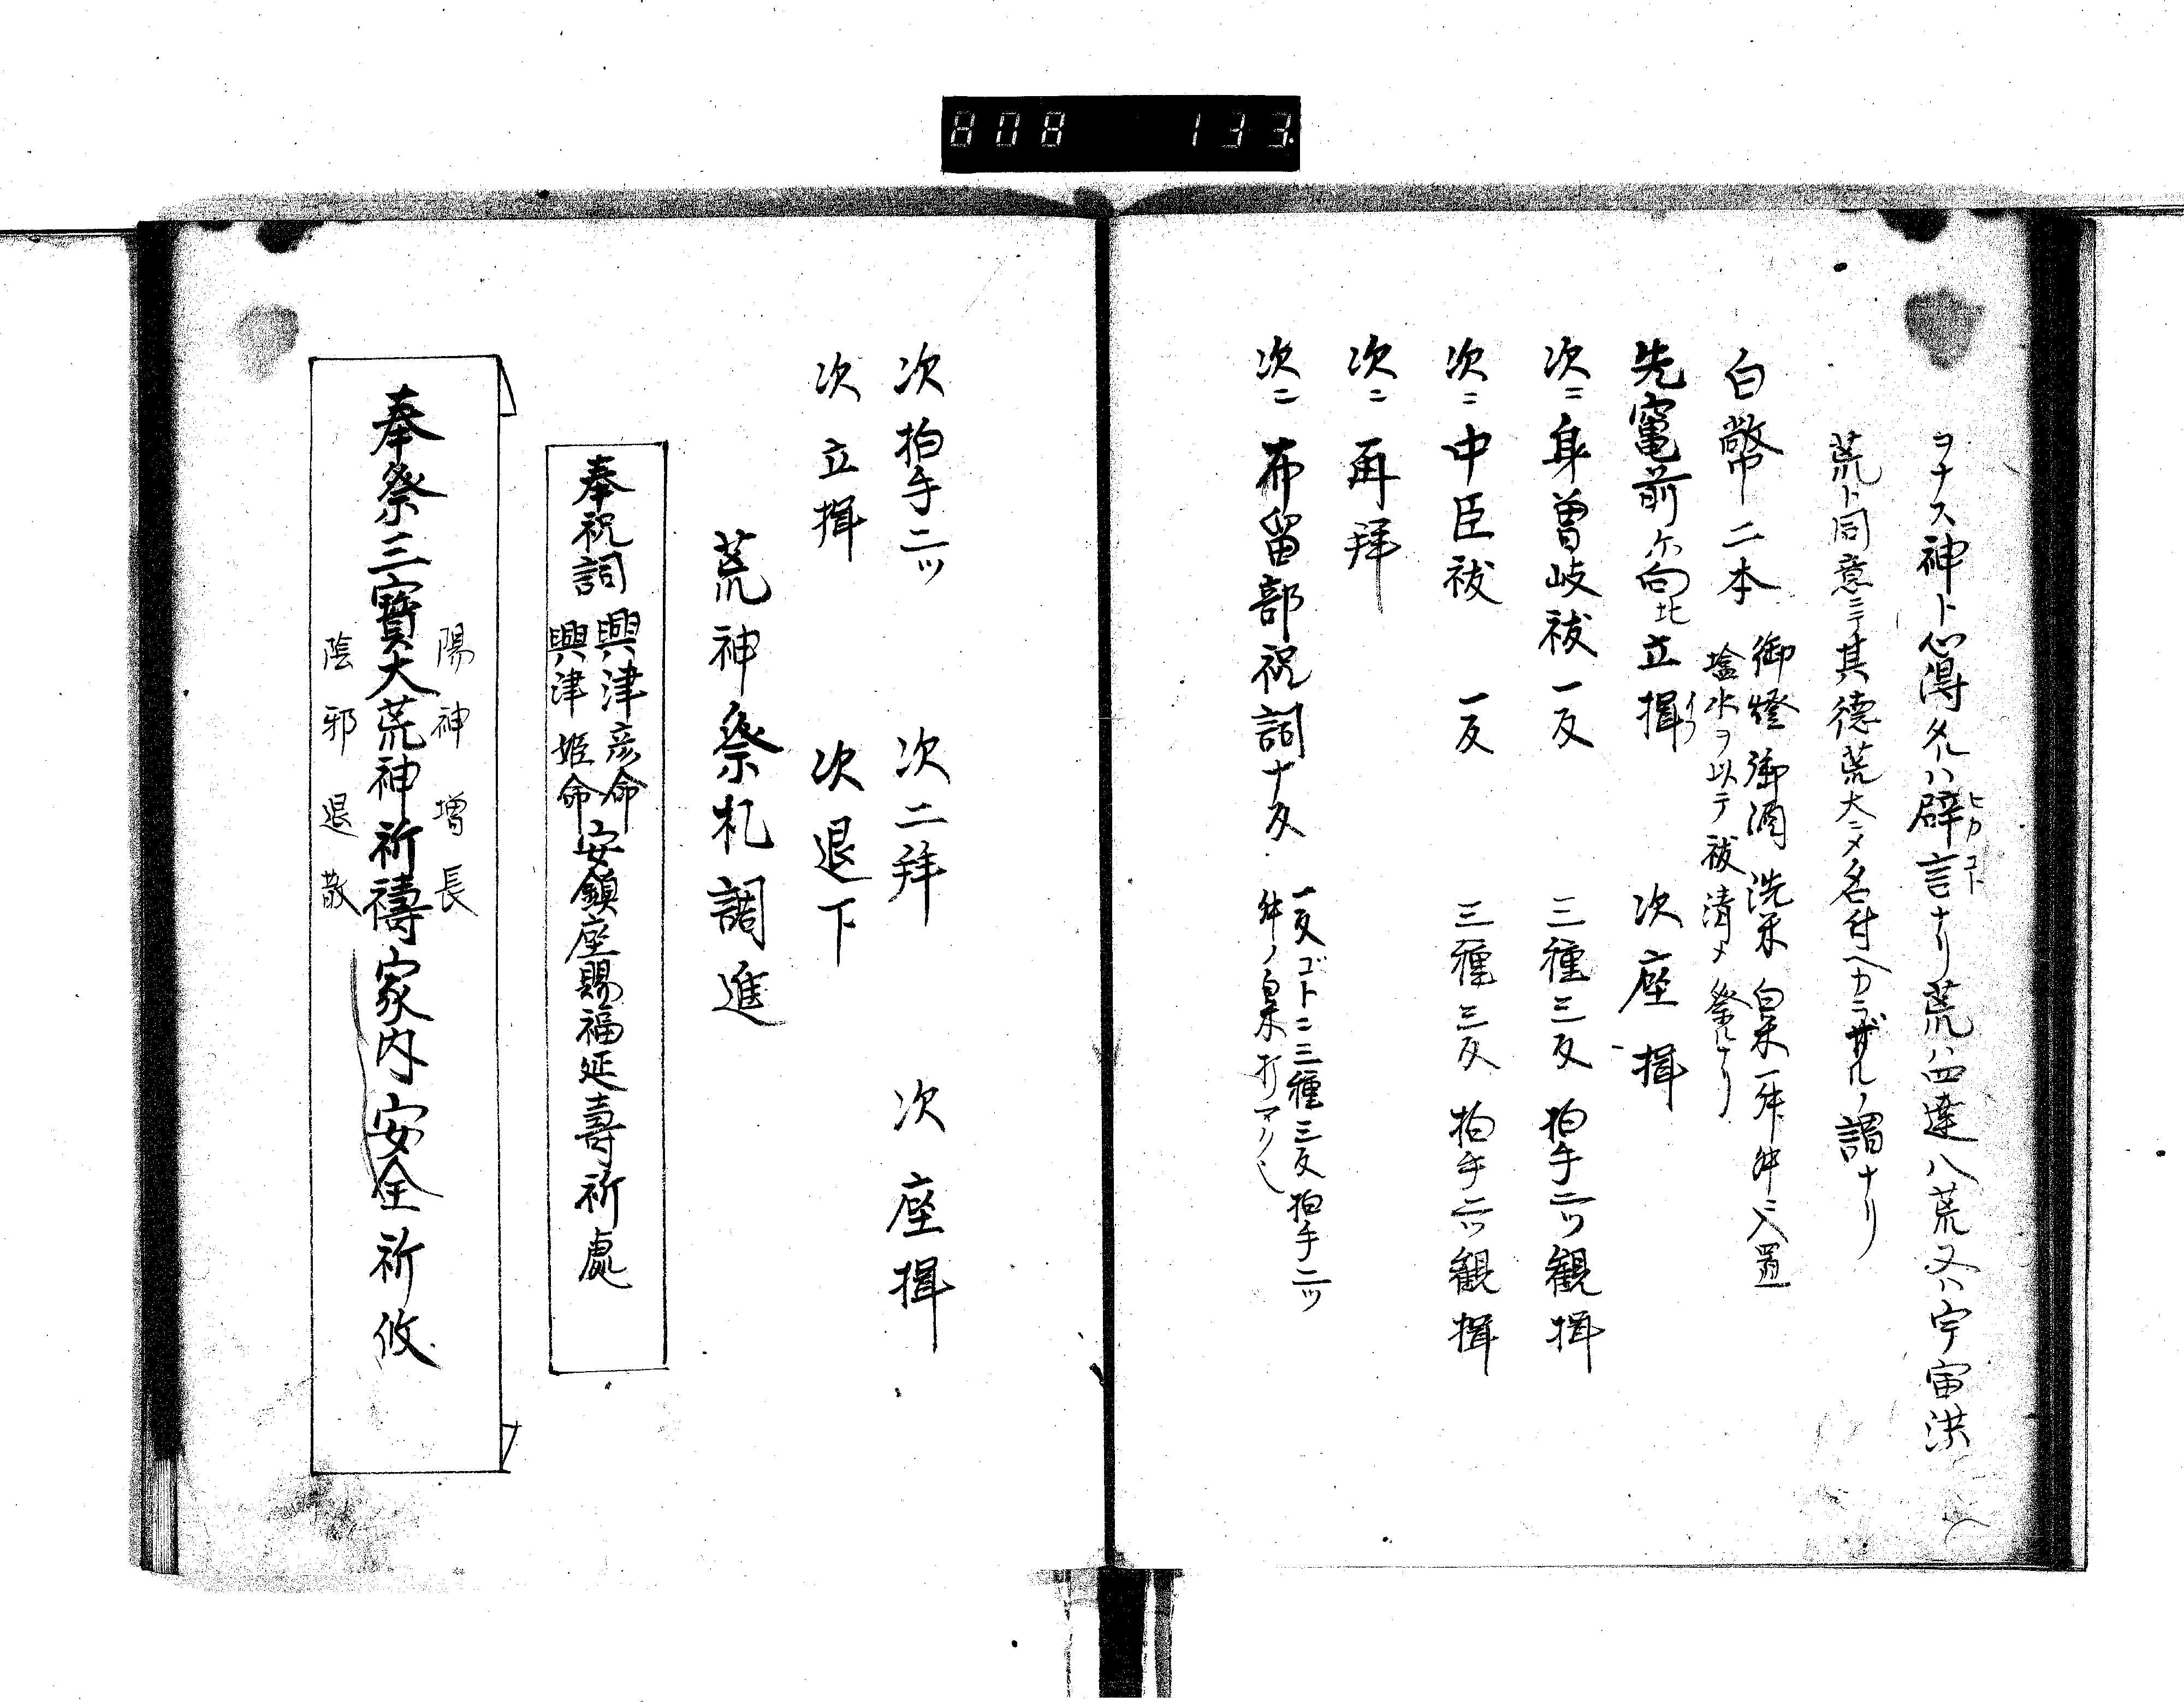 808 133.
ヲナス神ト心得タルハ僻言ナリ荒ハ四達八荒又ハ宇宙洪
ヒカコト
荒ト同意ニテ其德荒大ニメ名付ヘカラザルノ謂ナリ
白幣二本
御燈御酒洗米白米一舛舛ニ入置
塩水ヲ以テ祓清メ祭ルナリ
先竈前尓向比立揖 次座揖
次ニ身曽岐祓一反 三種三反 拍手二ツ 観揖
次ニ中臣祓 一反 三種三反 拍手二ツ 観揖
次ニ再拜
次ニ布留部祝詞十反
一反ゴトニ三種三反拍手二ツ
舛ノ白米打マク
次拍手二ツ 次二拜 次座揖
次立揖 次退下
荒神祭札調進
奉祝詞
興津彦命
興津姫命
安鎮座賜福延壽祈處
陽神增長
奉祭三寳大荒神祈禱家内安全祈攸
陰邪退散